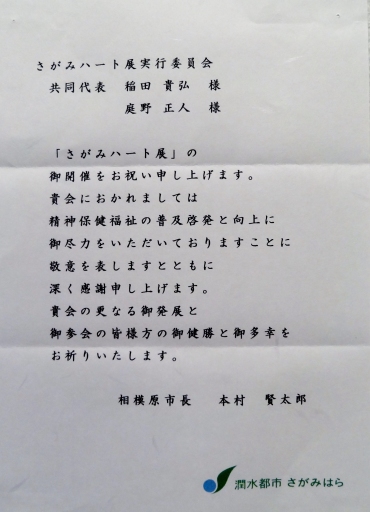 さがみハート展実行委員会
共同代表 稲田 貴弘 様
庭野 正人 様
「さがみハート展」の
御開催をお祝い申し上げます。
貴会におかれましては
精神保健福祉の普及啓発と向上に
御尽力をいただいておりますことに
敬意を表しますとともに
深く感謝申し上げます。
貴会の更なる御発展と
御参会の皆様方の御健勝と御多幸を
お祈りいたします。
相模原市長 本村 賢太郎
潤水都市 さがみはら